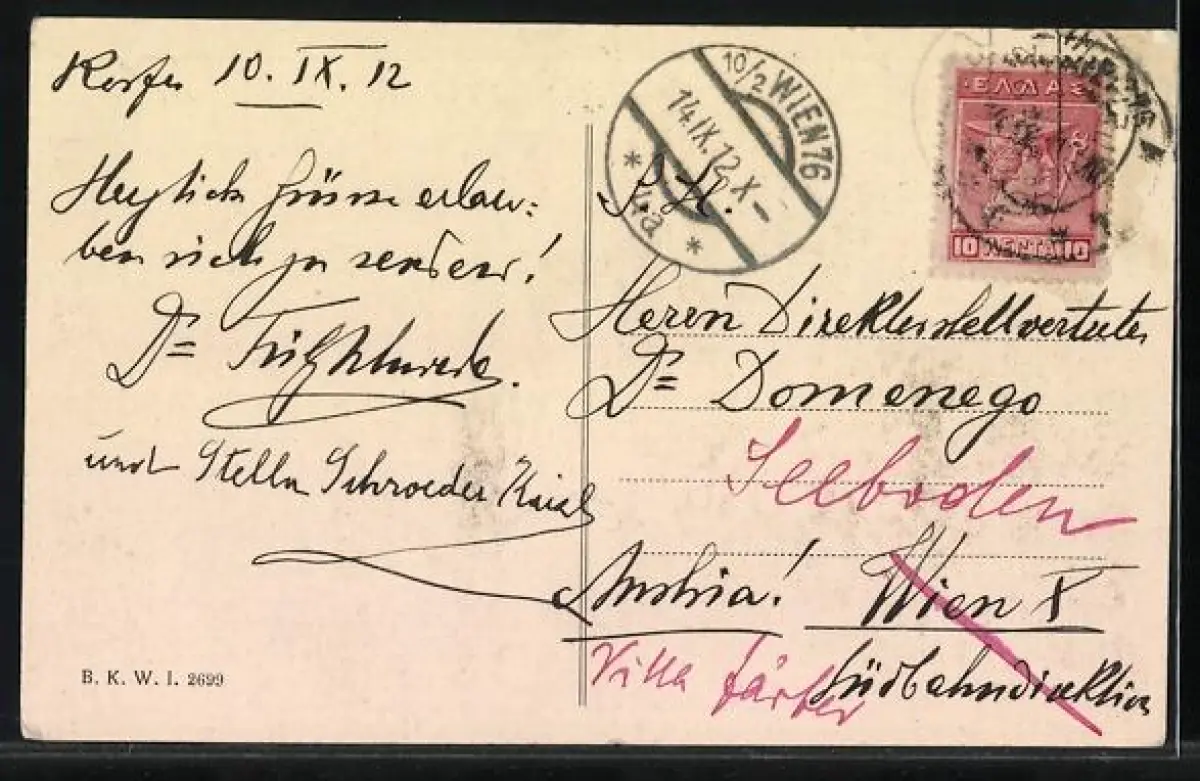 Korfu 10. IX. 12
Herzlichste Grüsse erlau=
ben sich zu senden!
Dr
und Stella Schroeder
B. K. W. I. 2699
10/2 WIEN 76
14.IX.12.X-
* 4a *
ΕΛΛΑΣ
10 ΛΕΠΤΑ 10
S. H.
Herrn Direktorstellvertreter
Dr Domenego
Seeboden
Austria! Wien X
Villa Färber
Südbahndirektion